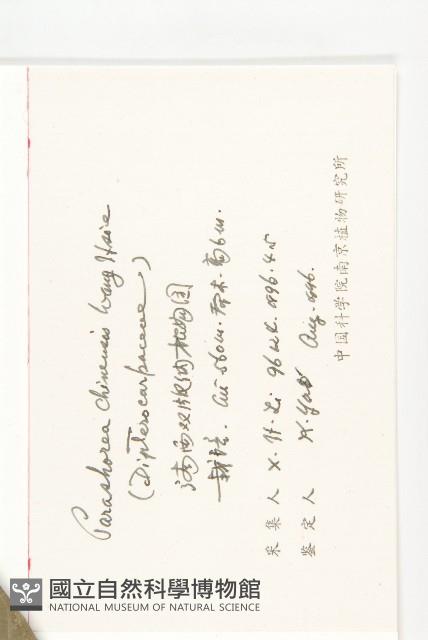 Parashorea chinensis Wang Hsie
(Dipterocarpaceae)
滇西双版纳植物园
栽培. alt 560m. 乔木. 高6m.
采集人 X. H. Li 96 . 1996. 4. 5
鉴定人 Aug. 1996.
中国科学院南京植物研究所
國立自然科學博物館
NATIONAL MUSEUM OF NATURAL SCIENCE